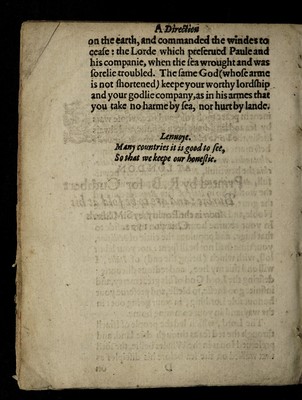 A Direction
on the earth, and commanded the windes to
cease: the Lorde which preserued Paule and
his companie, when the sea wrought and was
sorelie troubled. The same God (whose arme
is not shortened) keepe your worthy lordship
and your godlie company, as in his armes that
you take no harme by sea, nor hurt by lande.
Lenuoye.
Many countries it is good to see,
So that we keepe our honestie.